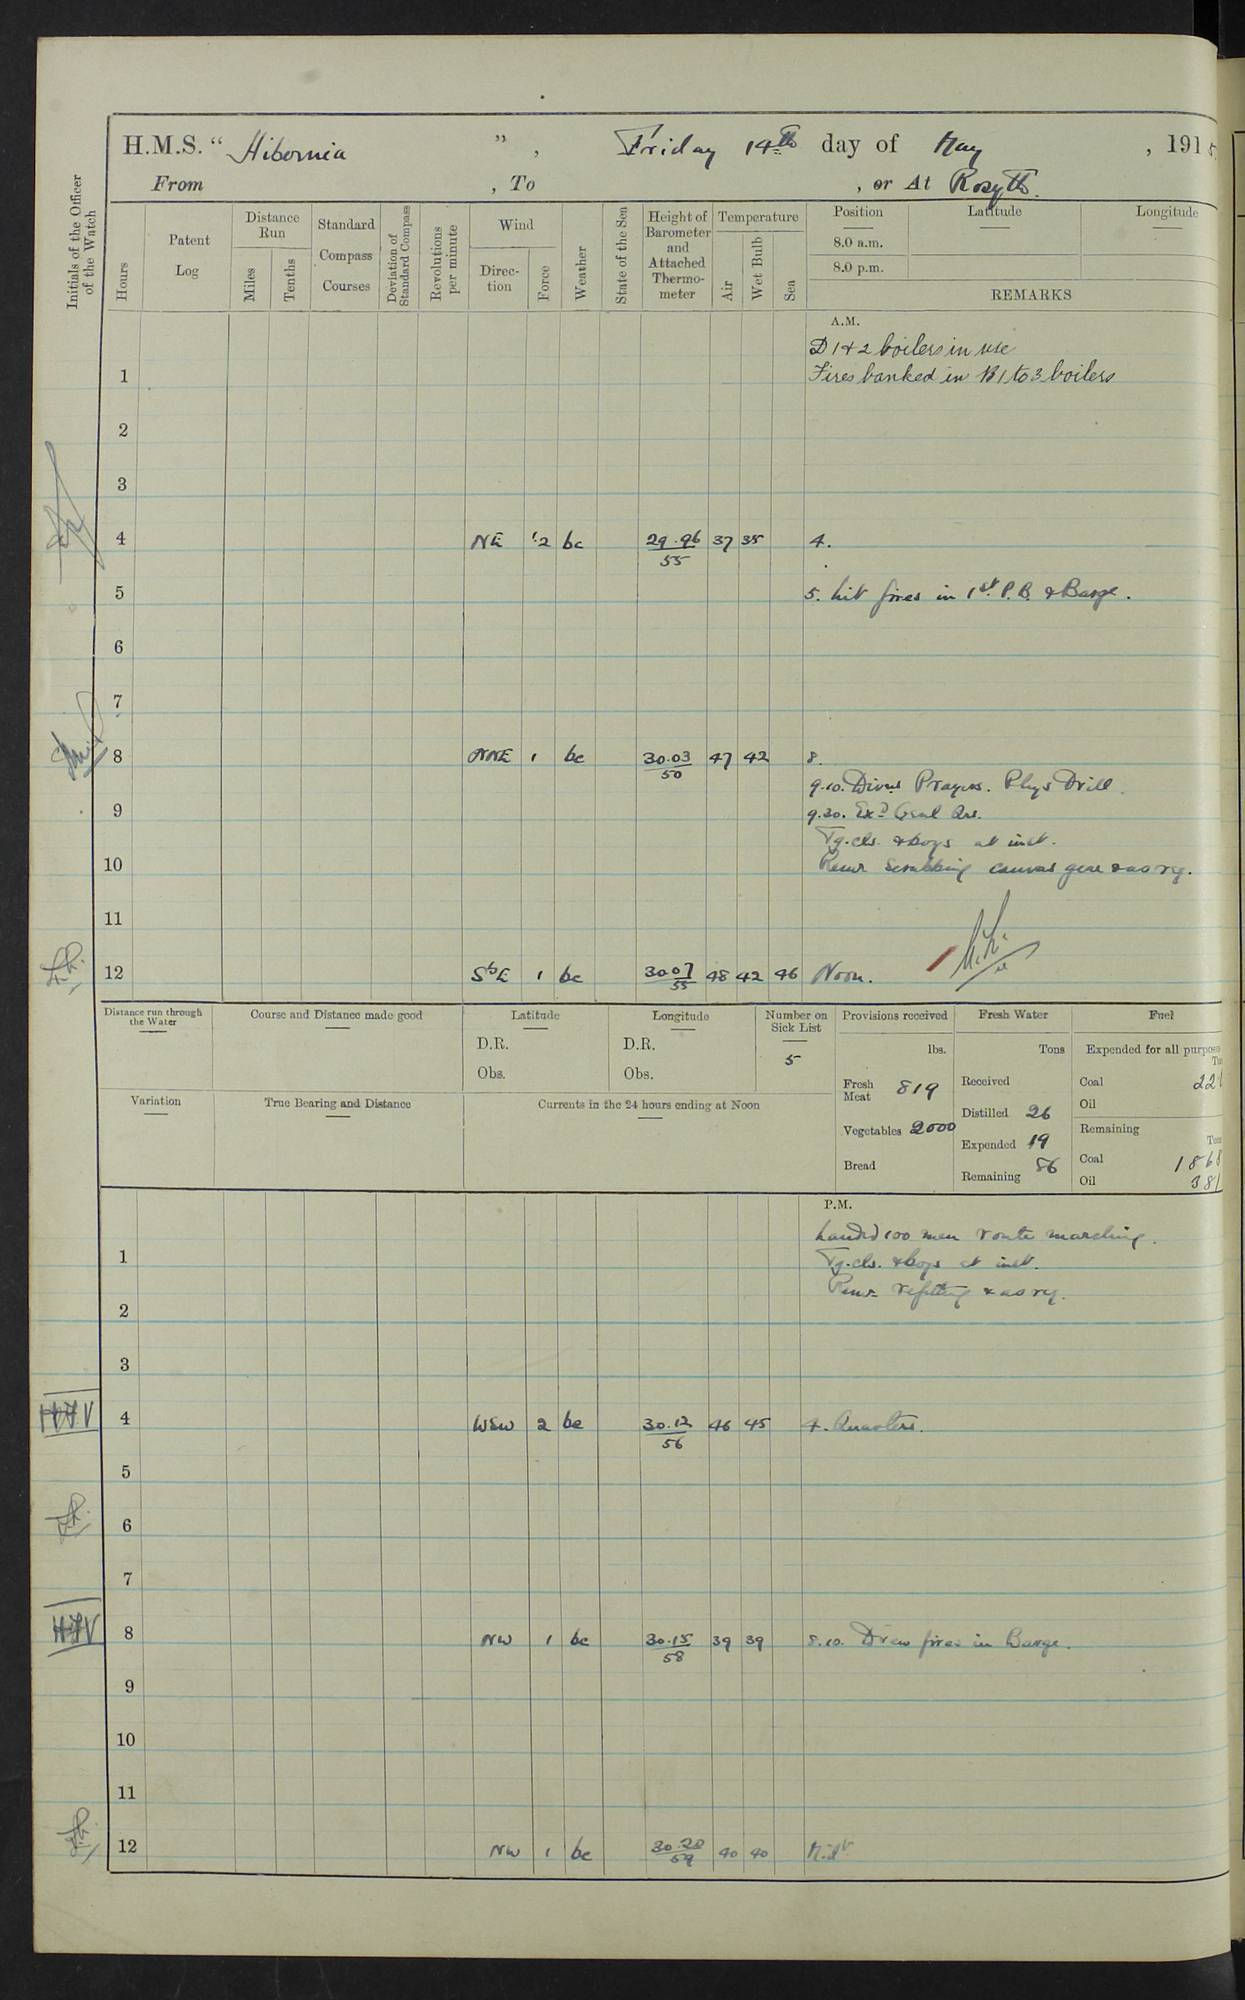 H.M.S. "Hibernia", Friday 14th day of May, 1915
From , To , or At Rosyth.
Initials of the Officer of the Watch
Hours
Patent Log
Distance Run
Miles
Tenths
Standard Compass Courses
Deviation of Standard Compass
Revolutions per minute
Wind
Direction
Force
Weather
State of the Sea
Height of Barometer and Attached Thermometer
Temperature
Air
Wet Bulb
Sea
Position
Latitude
Longitude
8.0 a.m.
8.0 p.m.
REMARKS
A.M.
D 1 & 2 boilers in use
1 Fires banked in B 1 to 3 boilers
2
3
4 NE 1.2 bc 29.96 37 35 4.
55
5 5. Lit fires in 1st P.B. & Barge.
6
7
8 NNE 1 bc 30.03 47 42 8.
50
9.10. Divns Prayers. Phys Drill.
9 9.30. Exd Genl Qrs.
Tg. cls. & boys at inst.
10 Remr Scrubbing canvas gear & as rq.
11
12 SbE 1 bc 30.07 48 42 46 Noon.
55
Distance run through the Water
Course and Distance made good
Latitude
D.R.
Obs.
Longitude
D.R.
Obs.
Number on Sick List
5
Provisions received
lbs.
Fresh Meat 819
Vegetables 2000
Bread
Fresh Water
Tons
Received
Distilled 26
Expended 19
Remaining 86
Fuel
Expended for all purposes
Coal
Oil
Remaining
Coal 1868
Oil 381
Variation
True Bearing and Distance
Currents in the 24 hours ending at Noon
P.M.
Landed 100 men route marching.
1 Tg. cls. & boys at inst.
Remr refitting & as rq.
2
3
4 WSW 2 bc 30.12 46 45 4. Quarters.
56
5
6
7
8 NW 1 bc 30.15 39 39 8.10. Drew fires in Barge.
58
9
10
11
12 NW 1 bc 30.20 40 40 Midt
59